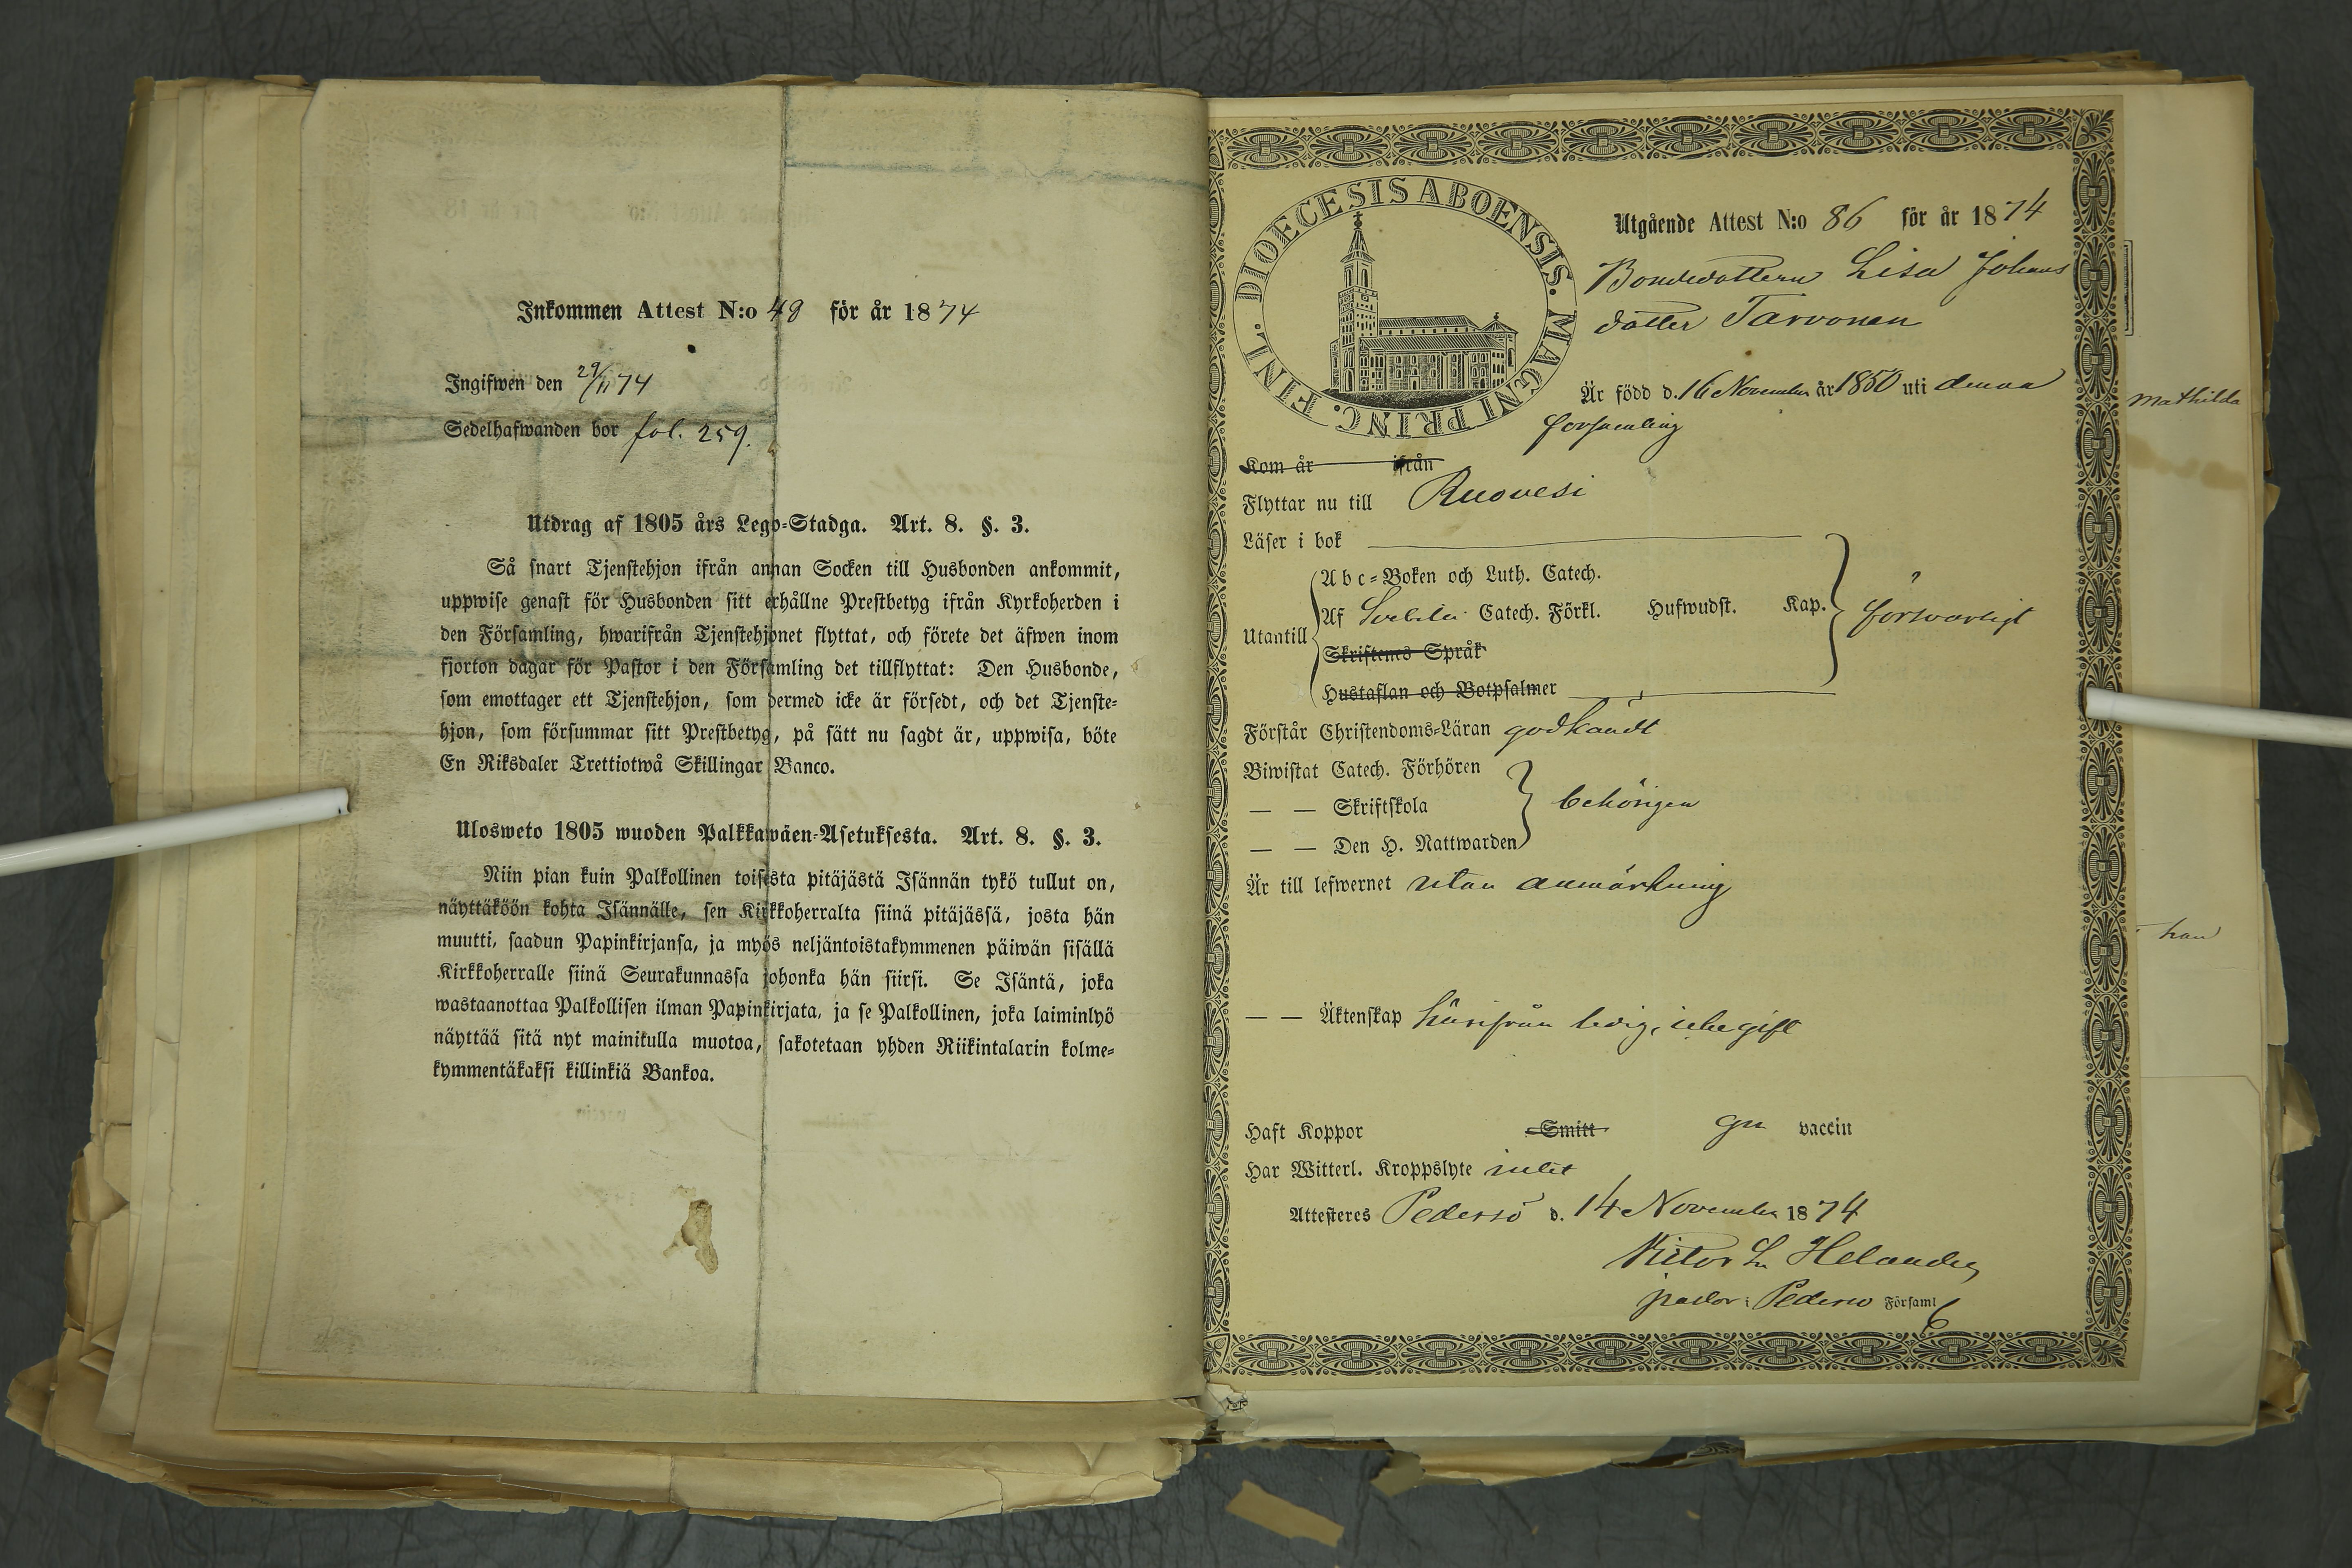 Inkommen Attest N:o 49 för år 1874
Ingifwen den 29/11 74
Sedelhafwanden bor fol. 259.
Utdrag af 1805 års Lego-Stadga. Art. 8. §. 3.
Så snart Tjenstehjon ifrån annan Socken till Husbonden ankommit,
uppwise genast för Husbonden sitt erhållne Prestbetyg ifrån Kyrkoherden i
den Församling, hwarifrån Tjenstehjonet flyttat, och förete det äfwen inom
fjorton dagar för Pastor i den Församling det tillflyttat: Den Husbonde,
som emottager ett Tjenstehjon, som dermed icke är försedt, och det Tjenste-
hjon, som försummar sitt Prestbetyg, på sätt nu sagdt är, uppwisa, böte
En Riksdaler Trettiotwå Skillingar Banco.
Ulosweto 1805 wuoden Palkkawäen-Asetuksesta. Art. 8. §. 3.
Niin pian kuin Palkollinen toisesta pitäjästä Isännän tykö tullut on,
näyttäköön kohta Isännälle, sen Kirkkoherralta siinä pitäjässä, josta hän
muutti, saadun Papinkirjansa, ja myös neljäntoistakymmenen päiwän sisällä
Kirkkoherralle siinä Seurakunnassa johonka hän siirsi. Se Isäntä, joka
wastaanottaa Palkollisen ilman Papinkirjata, ja se Palkollinen, joka laiminlyö
näyttää sitä nyt mainitulla muotoa, sakotetaan yhden Riikintalarin kolme-
kymmentäkaksi killinkiä Bankoa.
DIOECESIS ABOENSIS. MAGNI PRINC. FINL.
Utgående Attest N:o 86 för år 1874
Bondedottern Lisa Johans
dotter Tarvonen
Är född d. 16 November år 1850 uti denna
församling
Kom år ifrån
Flyttar nu till Ruovesi
Läser i bok
Abc-Boken och Luth. Catech.
Utantill Af Svebilii Catech. Förkl. Hufwudst. Kap. försvarligt
Skriftenes Språk
Hustaflan och Botpsalmer
Förstår Christendoms-Läran godkändt
Biwistat Catech. Förhören
— — Skriftskola behörigen
— — Den H. Nattwarden
Är till lefwernet utan anmärkning
— — Äktenskap härifrån ledig, icke gift
Haft Koppor Smitt gm vaccin
Har Witterl. Kroppslyte intet
Attesteres Pedersö d. 14 November 1874
Viktor Ln Helander
pastor i Pedersö Församl
Mathilda
han